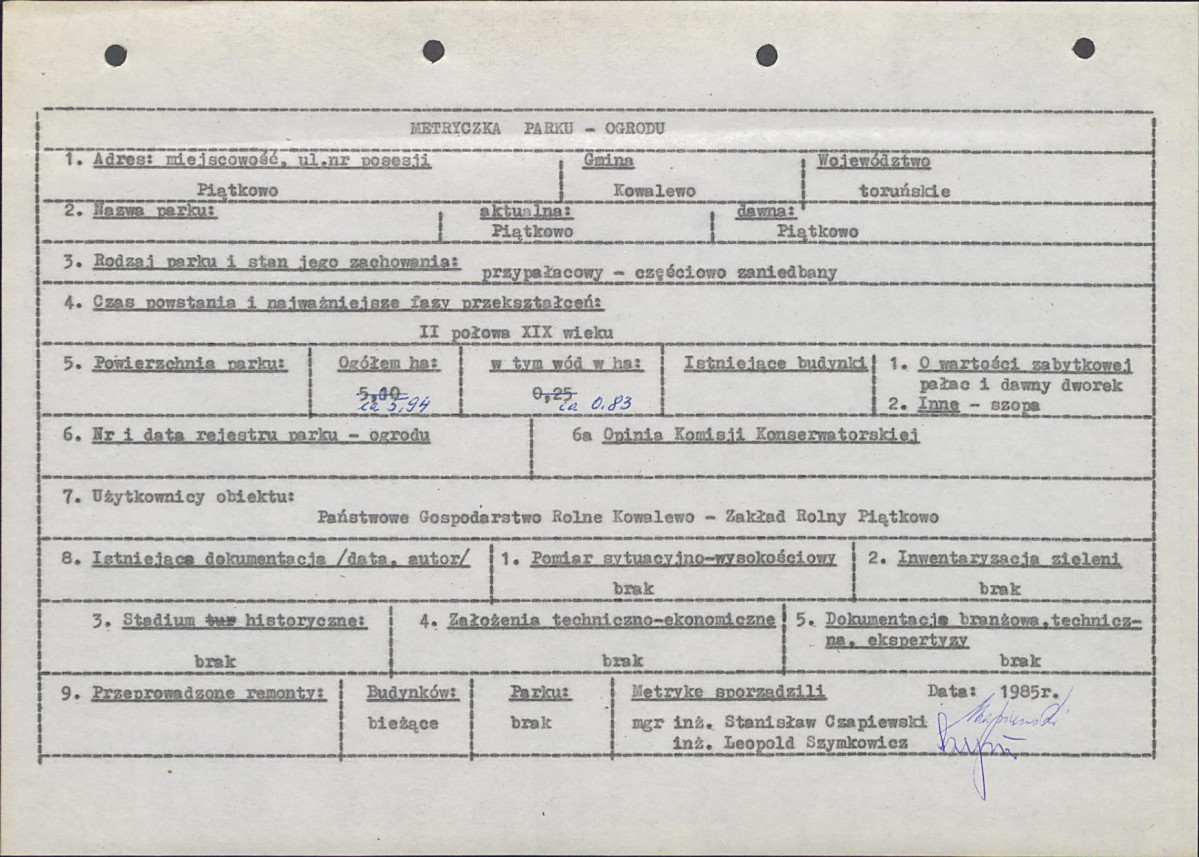 METRYCZKA PARKU - OGRODU
1. Adres: miejscowość, ul.nr posesji Gmina Województwo
Piątkowo Kowalewo toruńskie
2. Nazwa parku: aktualna: dawna:
Piątkowo Piątkowo
3. Rodzaj parku i stan jego zachowania: przypałacowy - częściowo zaniedbany
4. Czas powstania i najważniejsze fazy przekształceń:
II połowa XIX wieku
5. Powierzchnia parku: Ogółem ha: w tym wód w ha: Istniejące budynki 1. O wartości zabytkowej
pałac i dawny dworek
5,00 0,25
ca 5,94 ca 0.83
2. Inne - szopa
6. Nr i data rejestru parku - ogrodu 6a Opinia Komisji Konserwatorskiej
7. Użytkownicy obiektu:
Państwowe Gospodarstwo Rolne Kowalewo - Zakład Rolny Piątkowo
8. Istniejąca dokumentacja /data, autor/ 1. Pomiar sytuacyjno-wysokościowy 2. Inwentaryzacja zieleni
brak brak
3. Stadium tur historyczne: 4. Założenia techniczno-ekonomiczne 5. Dokumentacja branżowa,technicz-
na, ekspertyzy
brak brak brak
9. Przeprowadzone remonty: Budynków: Parku: Metrykę sporządzili Data: 1985r.
bieżące brak mgr inż. Stanisław Czapiewski
inż. Leopold Szymkowicz